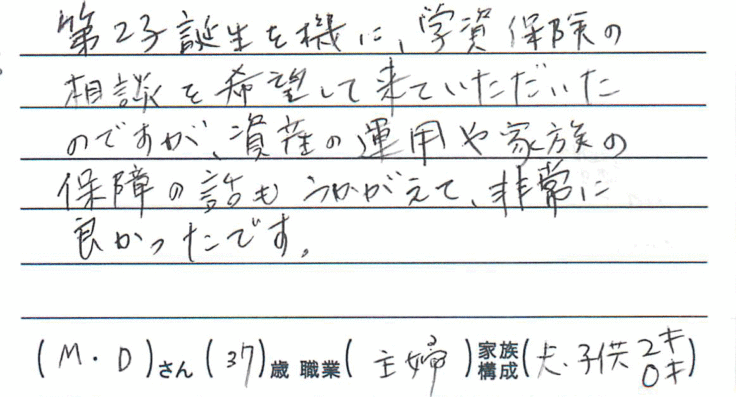 第2子誕生を機に、学資保険の
相談を希望して来ていただいた
のですが、資産の運用や家族の
保障の話もうかがえて、非常に
良かったです。
(M.D)さん(37)歳 職業(主婦)家族構成(夫.子供2才 0才)